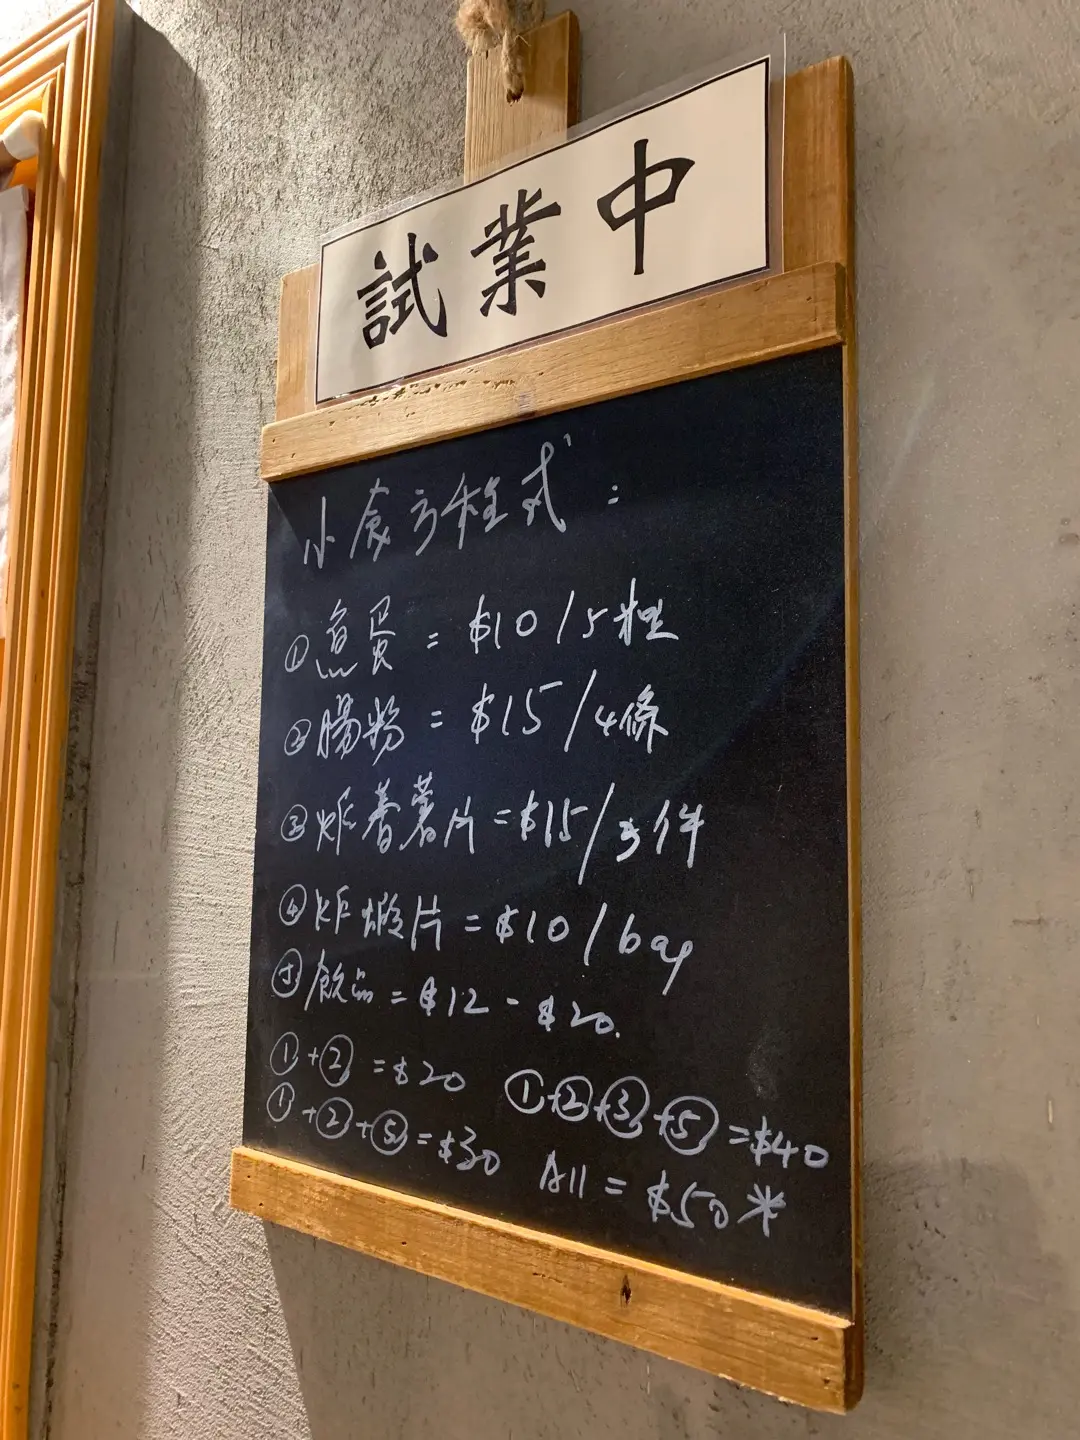 試業中
小食方程式：
① 魚蛋 = $10 / 5粒
② 腸粉 = $15 / 4條
③ 炸番薯片 = $15 / 3件
④ 炸蝦片 = $10 / bag
⑤ 飲品 = $12 - $20.
① + ② = $20
① + ② + ⑤ = $30
① + ② + ③ + ⑤ = $40
All = $50 米